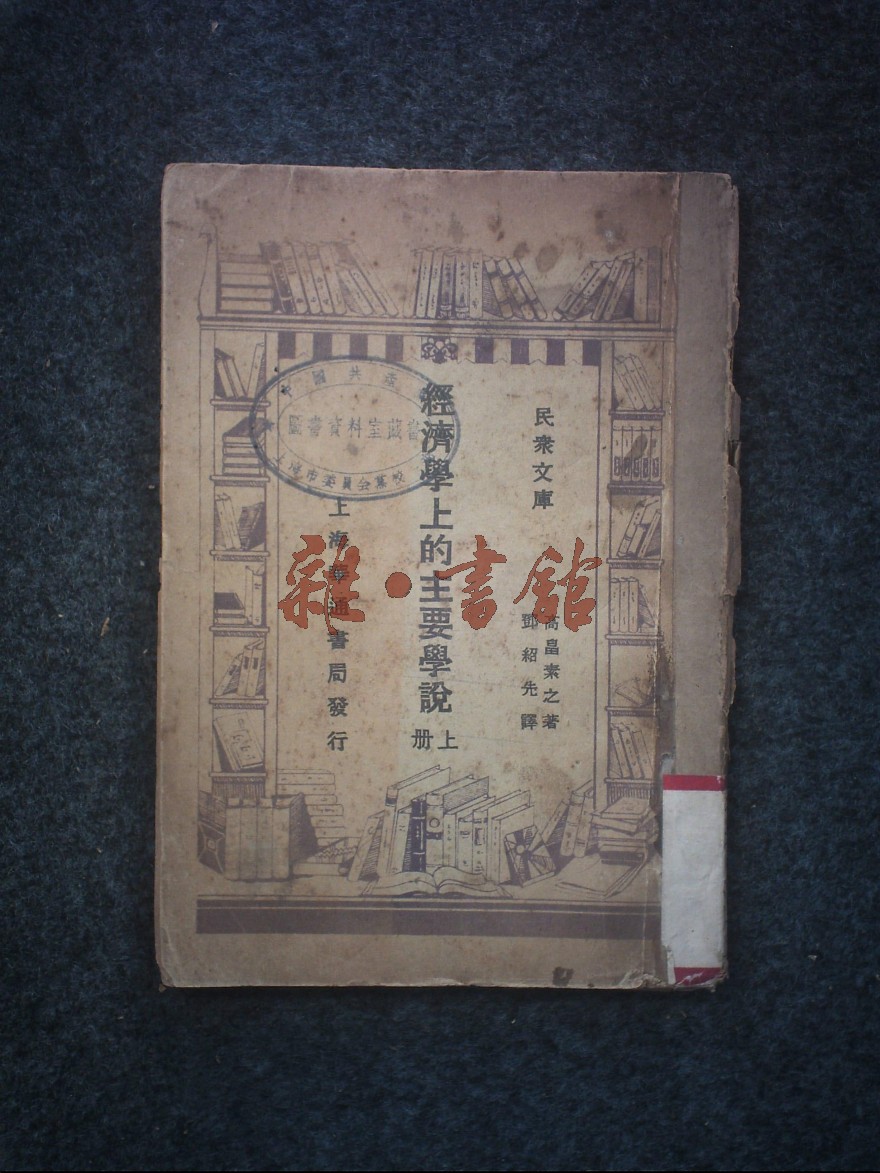 民衆文庫
高畠素之著
鄧紹先譯
經濟學上的主要學說
上册
上海華通書局發行
中國共產
圖書資料室藏書
上海市委員會黨校
雜·書館